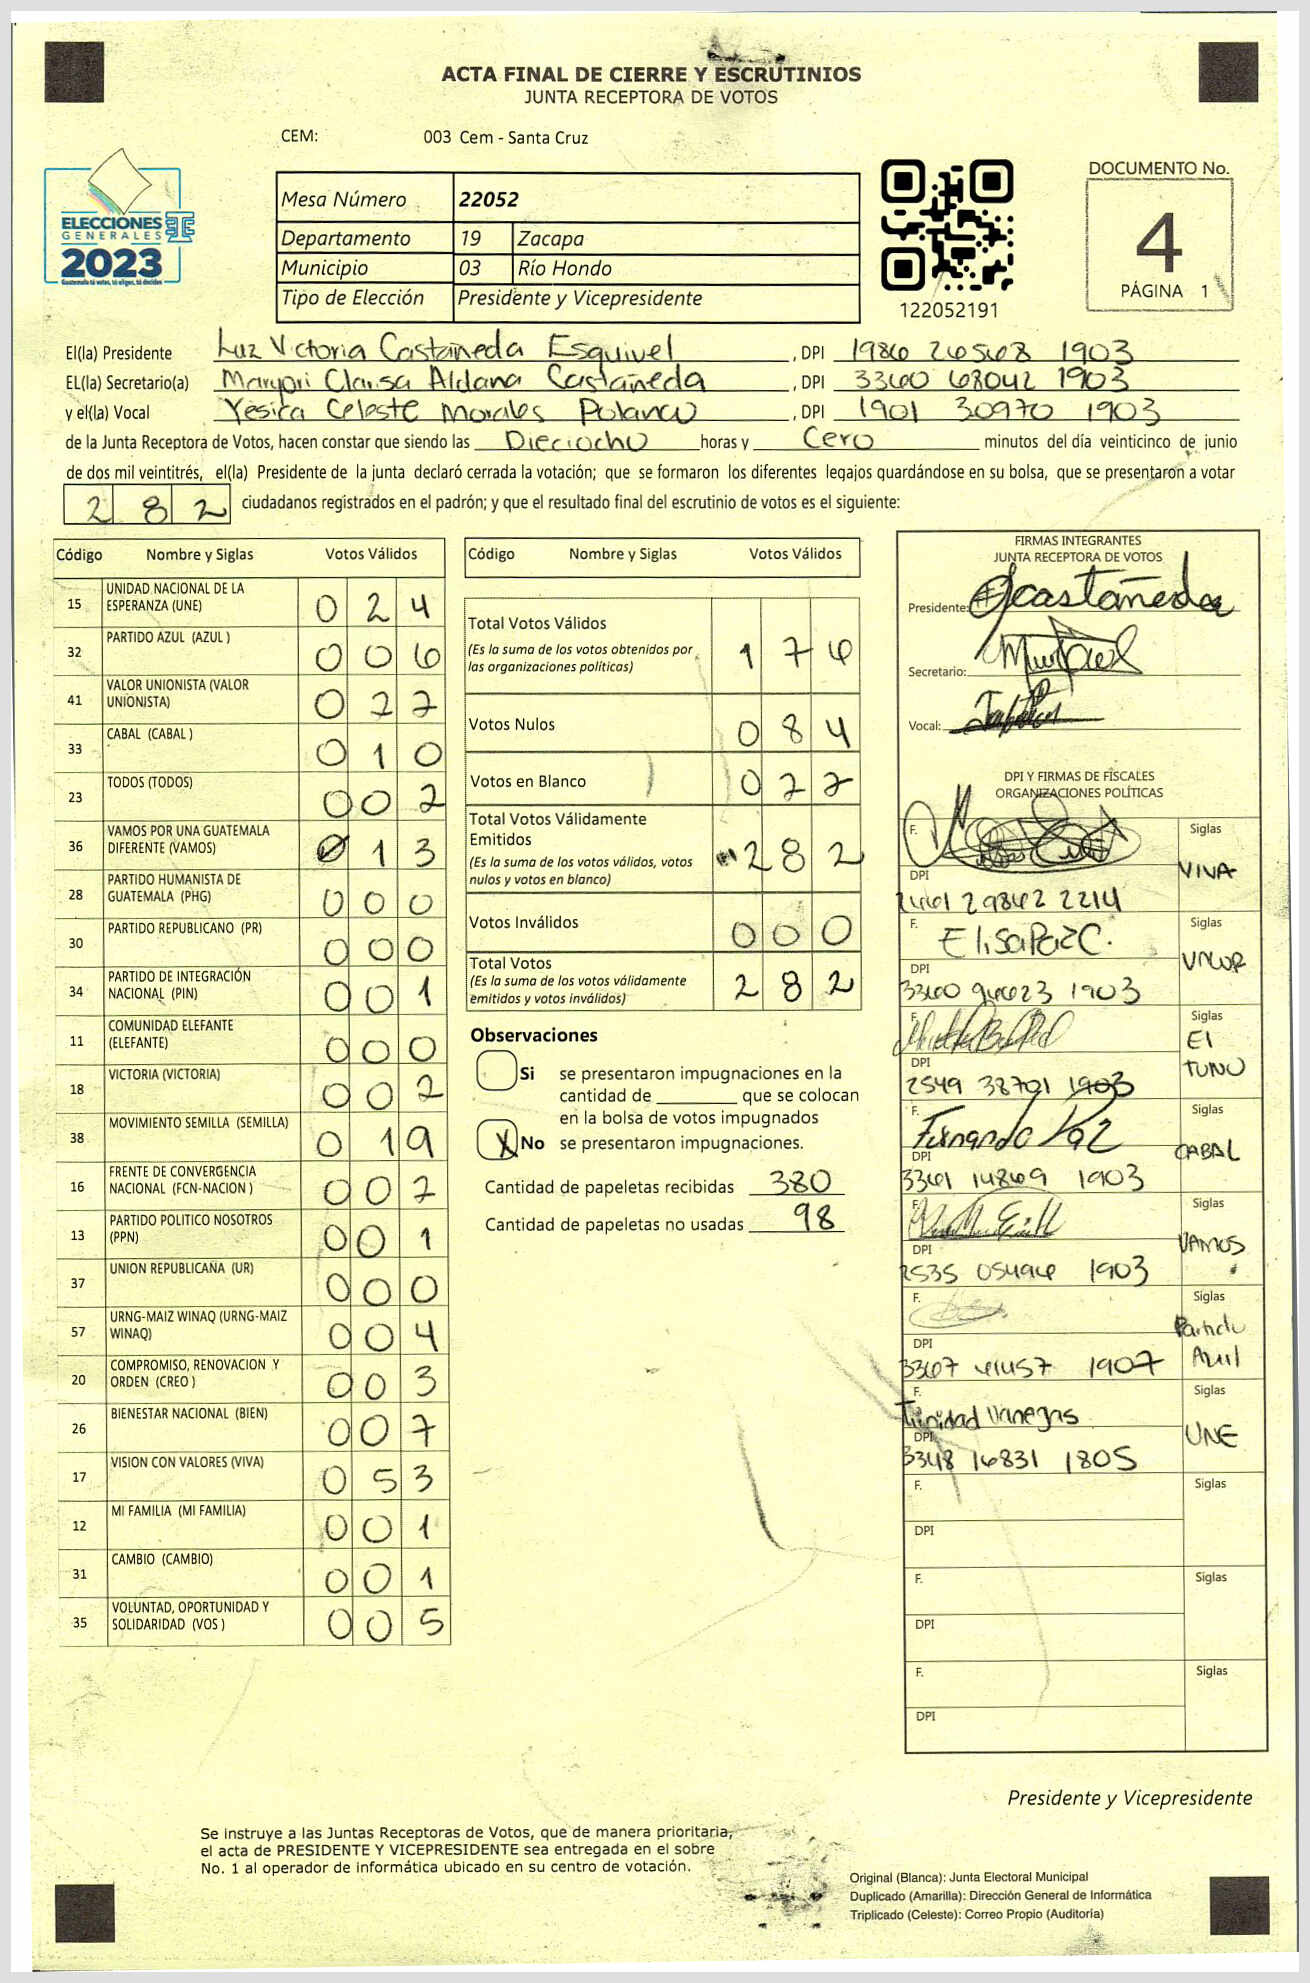 ACTA FINAL DE CIERRE Y ESCRUTINIOS
JUNTA RECEPTORA DE VOTOS
CEM: 003 Cem - Santa Cruz
ELECCIONES
GENERALES
2023
Guatemala tú votas, tú eliges, tú decides
Mesa Número 22052
Departamento 19 Zacapa
Municipio 03 Río Hondo
Tipo de Elección Presidente y Vicepresidente
122052191
DOCUMENTO No.
4
PÁGINA 1
El(la) Presidente Luz Victoria Castañeda Esquivel, DPI 1986 26568 1903
EL(la) Secretario(a) Maryori Clarisa Aldana Castañeda, DPI 3360 68042 1903
y el(la) Vocal Yesica Celeste Morales Polanco, DPI 1901 30970 1903
de la Junta Receptora de Votos, hacen constar que siendo las Dieciocho horas y Cero minutos del día veinticinco de junio
de dos mil veintitrés, el(la) Presidente de la junta declaró cerrada la votación; que se formaron los diferentes legajos quardándose en su bolsa, que se presentaron a votar
2 8 2 ciudadanos registrados en el padrón; y que el resultado final del escrutinio de votos es el siguiente:
Código Nombre y Siglas Votos Válidos
15 UNIDAD NACIONAL DE LA ESPERANZA (UNE) 0 2 4
32 PARTIDO AZUL (AZUL ) 0 0 6
41 VALOR UNIONISTA (VALOR UNIONISTA) 0 2 2
33 CABAL (CABAL ) 0 1 0
23 TODOS (TODOS) 0 0 2
36 VAMOS POR UNA GUATEMALA DIFERENTE (VAMOS) 0 1 3
28 PARTIDO HUMANISTA DE GUATEMALA (PHG) 0 0 0
30 PARTIDO REPUBLICANO (PR) 0 0 0
34 PARTIDO DE INTEGRACIÓN NACIONAL (PIN) 0 0 1
11 COMUNIDAD ELEFANTE (ELEFANTE) 0 0 0
18 VICTORIA (VICTORIA) 0 0 2
38 MOVIMIENTO SEMILLA (SEMILLA) 0 19
16 FRENTE DE CONVERGENCIA NACIONAL (FCN-NACION ) 0 0 2
13 PARTIDO POLITICO NOSOTROS (PPN) 0 0 1
37 UNION REPUBLICANA (UR) 0 0 0
57 URNG-MAIZ WINAQ (URNG-MAIZ WINAQ) 0 0 4
20 COMPROMISO, RENOVACION Y ORDEN (CREO ) 0 0 3
26 BIENESTAR NACIONAL (BIEN) 0 0 7
17 VISION CON VALORES (VIVA) 0 5 3
12 MI FAMILIA (MI FAMILIA) 0 0 1
31 CAMBIO (CAMBIO) 0 0 1
35 VOLUNTAD, OPORTUNIDAD Y SOLIDARIDAD (VOS ) 0 0 5
Código Nombre y Siglas Votos Válidos
Total Votos Válidos
(Es la suma de los votos obtenidos por
las organizaciones políticas) 1 7 6
Votos Nulos 0 8 4
Votos en Blanco 0 2 2
Total Votos Válidamente
Emitidos
(Es la suma de los votos válidos, votos
nulos y votos en blanco) 2 8 2
Votos Inválidos 0 0 0
Total Votos
(Es la suma de los votos válidamente
emitidos y votos inválidos) 2 8 2
Observaciones
Si se presentaron impugnaciones en la
cantidad de ________ que se colocan
en la bolsa de votos impugnados
X No se presentaron impugnaciones.
Cantidad de papeletas recibidas 380
Cantidad de papeletas no usadas 98
FIRMAS INTEGRANTES
JUNTA RECEPTORA DE VOTOS
Presidente: Castañeda
Secretario:
Vocal:
DPI Y FIRMAS DE FISCALES
ORGANIZACIONES POLÍTICAS
F. Siglas
VIVA
DPI
2461 29862 2214
F. Elisa Paz C. Siglas
VALOR
DPI
3360 94623 1903
F. Siglas
El
TUNO
DPI
2549 38701 1903
F. Fernando Paz Siglas
CABAL
DPI
3361 14869 1903
F. Siglas
VAMOS
DPI
2535 05496 1903
F. Siglas
Partido
Azul
DPI
3367 41457 1907
F. Trinidad Vanegas Siglas
UNE
DPI
3348 16831 1805
F. Siglas
DPI
F. Siglas
DPI
F. Siglas
DPI
Presidente y Vicepresidente
Se instruye a las Juntas Receptoras de Votos, que de manera prioritaria,
el acta de PRESIDENTE Y VICEPRESIDENTE sea entregada en el sobre
No. 1 al operador de informática ubicado en su centro de votación.
Original (Blanca): Junta Electoral Municipal
Duplicado (Amarilla): Dirección General de Informática
Triplicado (Celeste): Correo Propio (Auditoría)